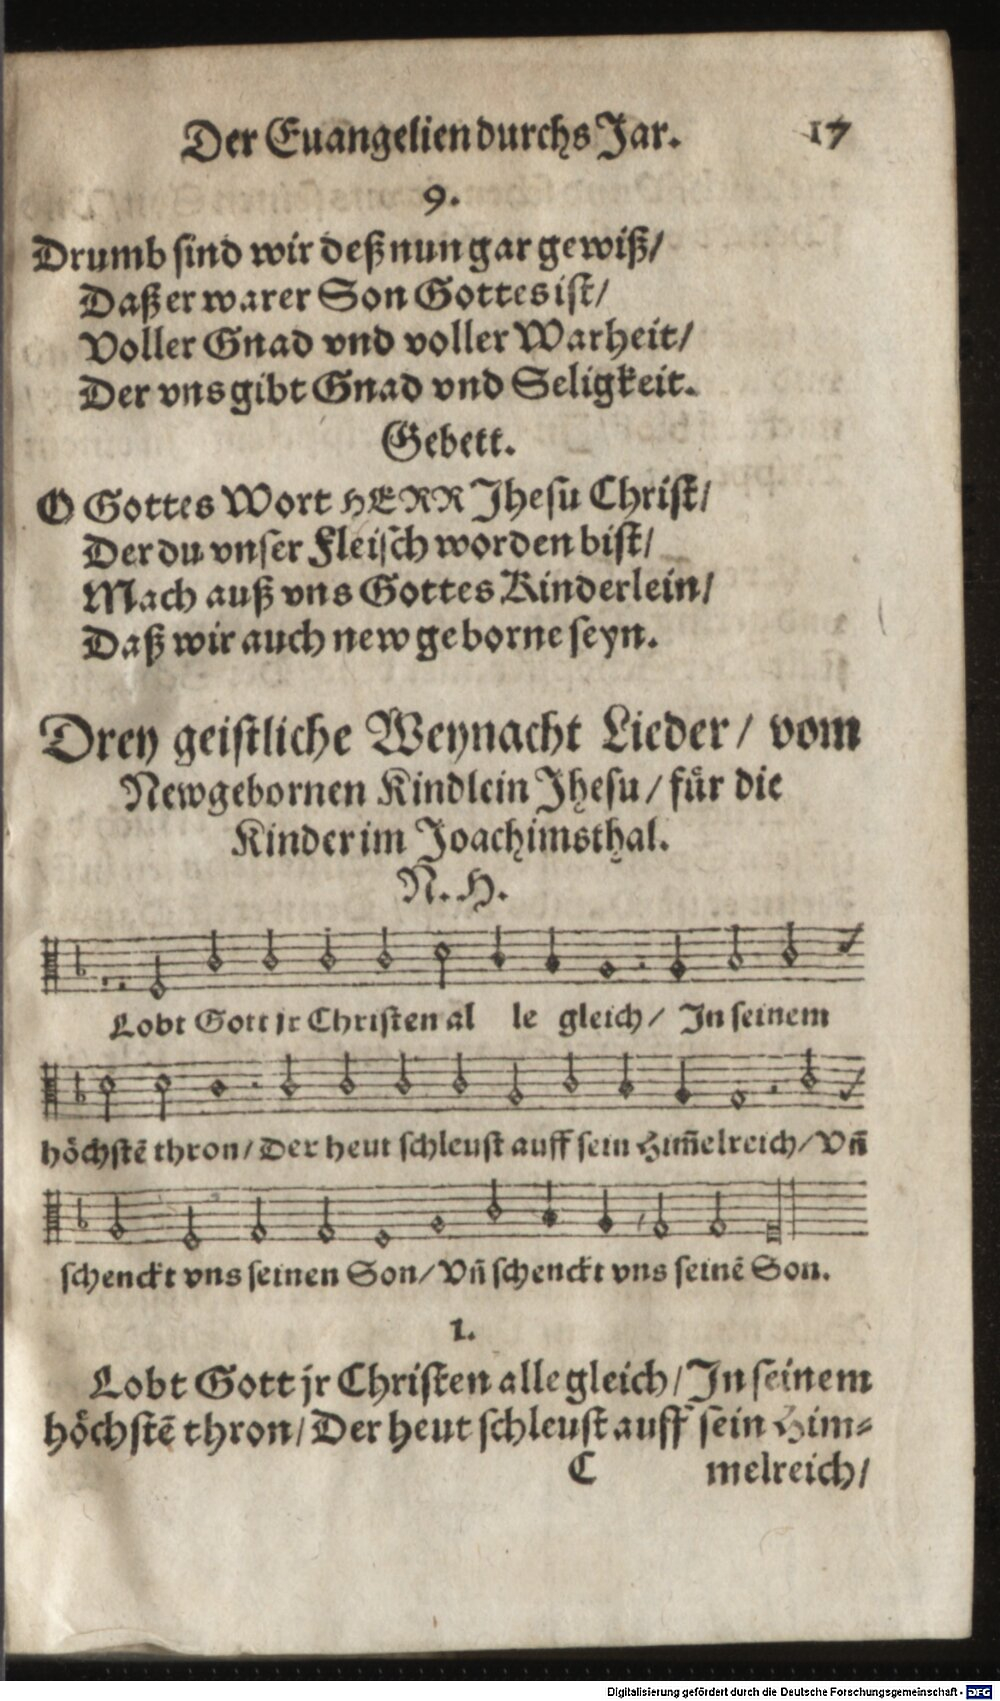 Der Euangelien durchs Jar. 17
9.
Drumb sind wir deß nun gar gewiß/
Daß er warer Son Gottes ist/
Voller Gnad vnd voller Warheit/
Der vns gibt Gnad vnd Seligkeit.
Gebett.
O Gottes Wort HERR Jhesu Christ/
Der du vnser Fleisch worden bist/
Mach auß vns Gottes Kinderlein/
Daß wir auch new geborne seyn.
Drey geistliche Weynacht Lieder/ vom
Newgebornen Kindlein Jhesu/ für die
Kinder im Joachimsthal.
N. H.
Lobt Gott jr Christen al le gleich/ In seinem
höchstē thron/ Der heut schleust auff sein Him̃elreich/ Vñ
schenckt vns seinen Son/ Vñ schenckt vns seinē Son.
1.
Lobt Gott jr Christen alle gleich/ In seinem
höchstē thron/ Der heut schleust auff sein Him-
C melreich/
Digitalisierung gefördert durch die Deutsche Forschungsgemeinschaft - DFG